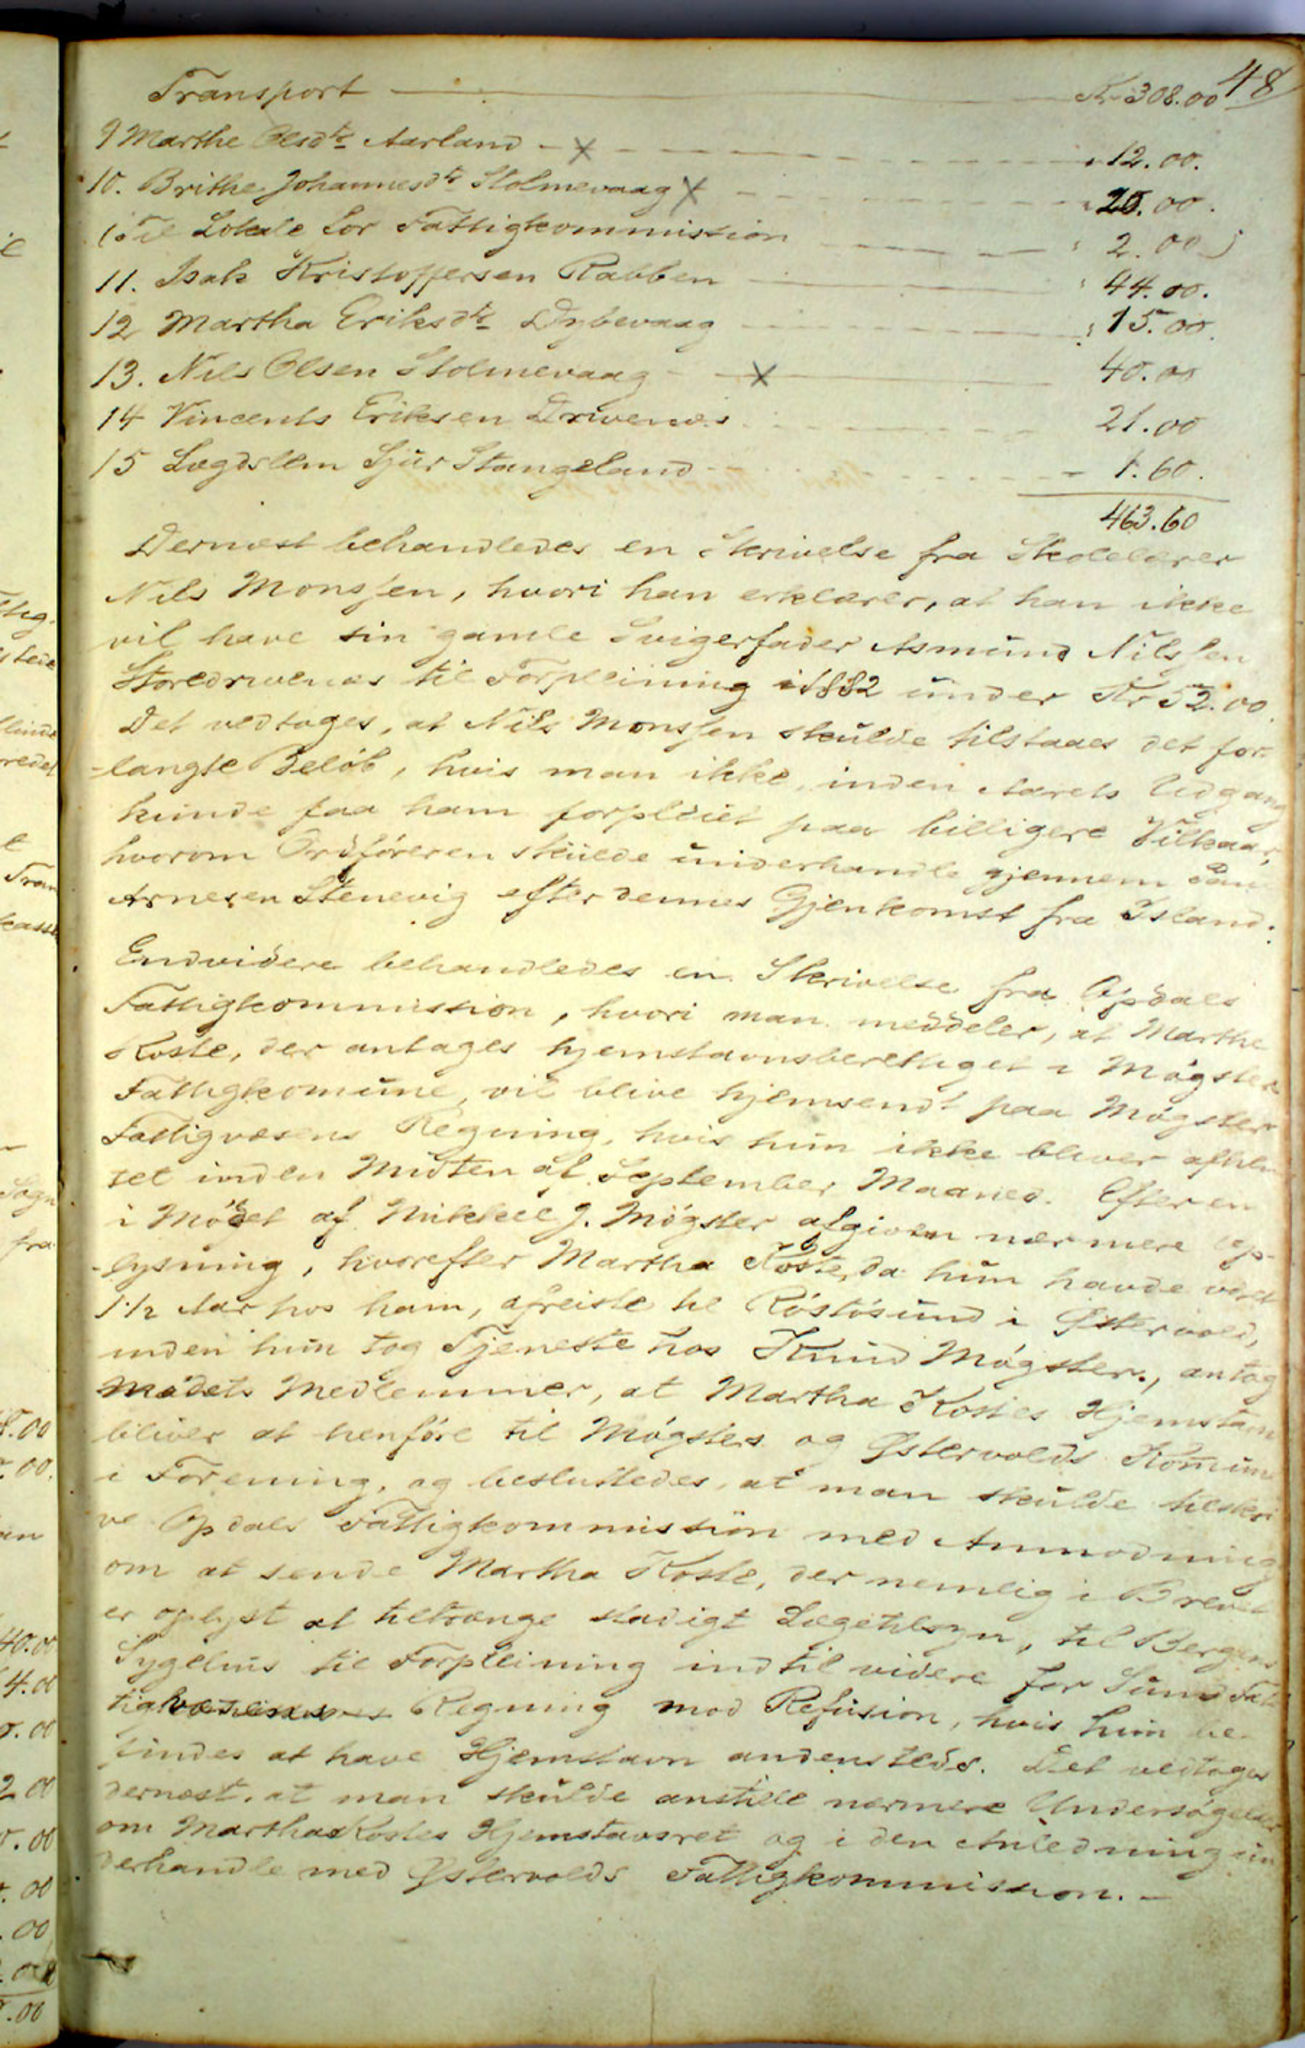 48
Transport Kr 308.00
9 Marthe Olsdtr Aarland - x 12.00.
10. Brithe Johannesdtr Stolmevaag x 20.00.
(Til Lokale for Fattigkommission 2.00)
11. Isak Kristoffersen Rabben 44.00.
12 Martha Eriksdtr Dybevaag 15.00.
13. Nils Olsen Stolmevaag - x 40.00
14 Vincents Eriksen Drivenæs 21.00
15 Lægdslem Sjur Stangeland 1.60.
463.60
Dernæst behandledes en Skrivelse fra Skolelærer
Nils Monssen, hvori han erklærer, at han ikke
vil have sin gamle Svigerfader Asmund Nilssen
Storedrivenæs til Forpleining i 1882 under Kr 52.00.
Det vedtoges, at Nils Monssen skulde tilstaaes det for-
langte Beløb, hvis man ikke inden Aarets Udgang
kunde faa ham forpleiet paa billigere Vilkaar,
hvorom Ordføreren skulde underhandle gjennem
Arnesen Stenevig efter dennes Gjenkomst fra Island.
Endvidere behandledes en Skrivelse fra Opdals
Fattigkommission, hvori man meddeler, at Marthe
Koste, der antages hjemstavnsberettiget i Møgster
Fattigkomune, vil blive hjemsendt paa Møgster
Fattigvæsens Regning, hvis hun ikke bliver afhen-
tet inden Midten af September Maaned. Efter en
i Mødet af Mikkel J. Møgster afgiven nærmere Op-
lysning, hvorefter Martha Koste, da hun havde været
1½ Aar hos ham, afreiste til Röstösund i Østervold,
inden hun tog Tjeneste hos Knud Møgster, antog
Mødets Medlemmer, at Martha Kostes Hjemstavn
bliver at henføre til Møgsters og Østervolds Komune
i Forening, og besluttedes, at man skulde tilskri-
ve Opdals Fattigkommission med Anmodning
om at sende Martha Koste, der nemlig i Brevet
er oplyst at tiltrænge stadigt Lægetilsyn, til Bergens
Sygehus til Forpleining indtil videre for Sunds Fat-
tigvæsens Regning mod Refusion, hvis hun be-
findes at have Hjemstavn andensteds. Det vedtoges
dernæst, at man skulde anstille nærmere Undersøgelser
om Martha Kostes Hjemstavsret og i den Anledning un-
derhandle med Østervolds Fattigkommission. -